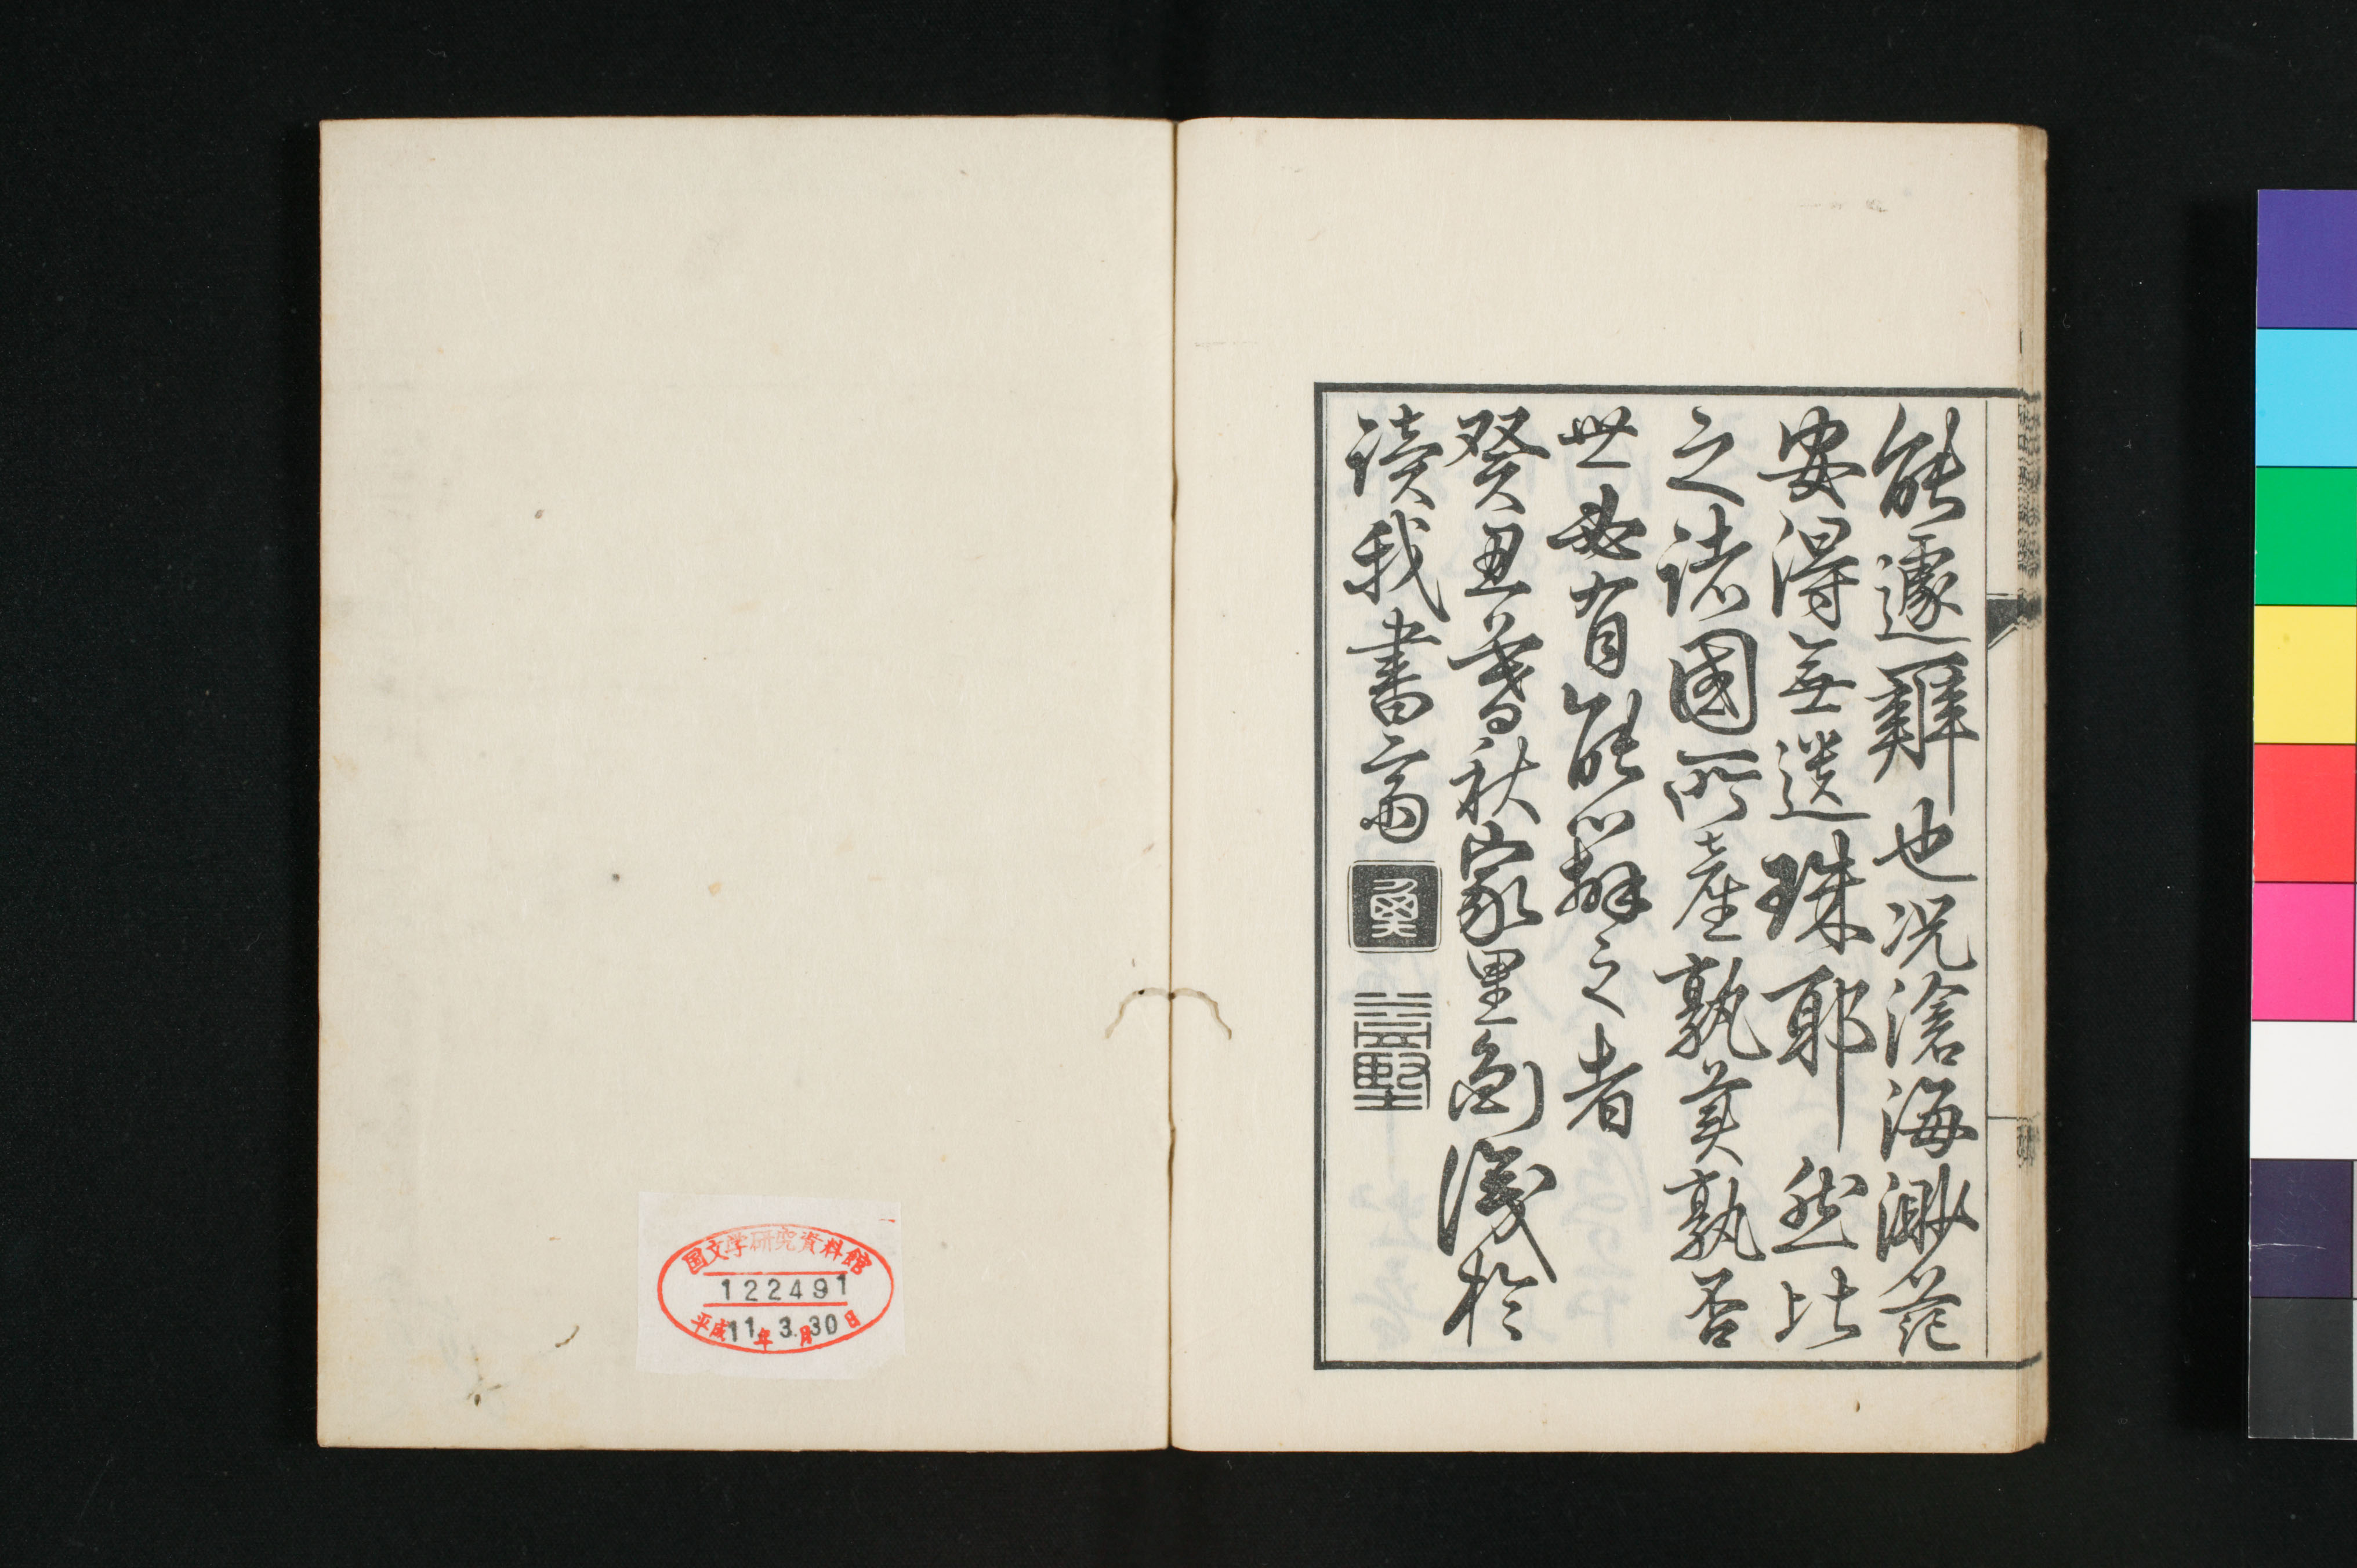 能遽難也況滄海渺茫
安得無遺珠耶然比
之諸國所產孰美孰否
世必有能辯之者
癸丑暮秋家里衡識於
讀我書齋
国文学研究資料館
122491
平成11年3月30日